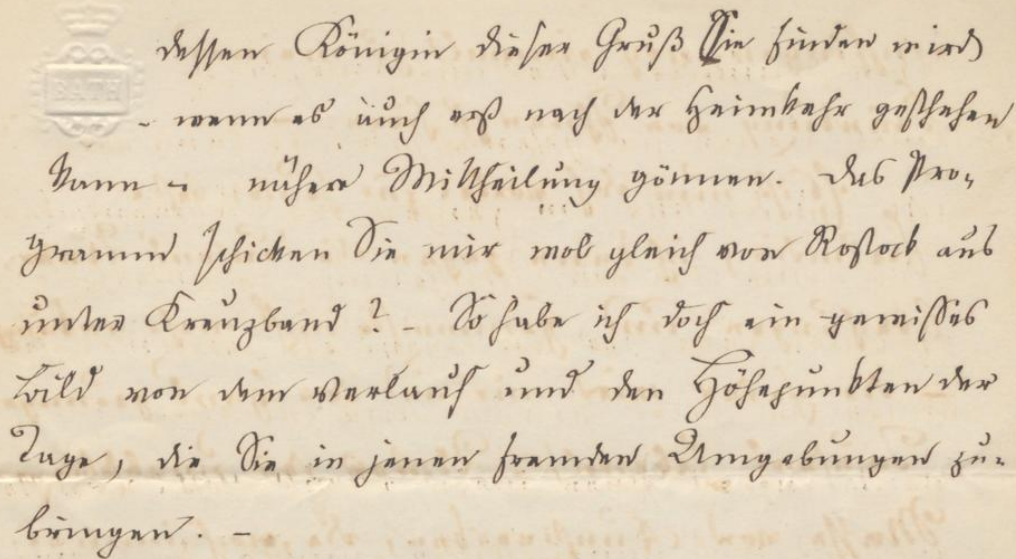 BATH
dessen Königin dieser Gruß Sie finden wird
- wenn es auch erst nach der Heimkehr geschehen
kann - nähere Mittheilung gönnen. Das Pro-
gramm schicken Sie mir wol gleich von Rostock aus
unter Kreuzband? - So habe ich doch ein gewisses
Bild von dem Verlauf und den Höhepunkten der
Tage, die Sie in jenen fremden Umgebungen zu-
bringen. -